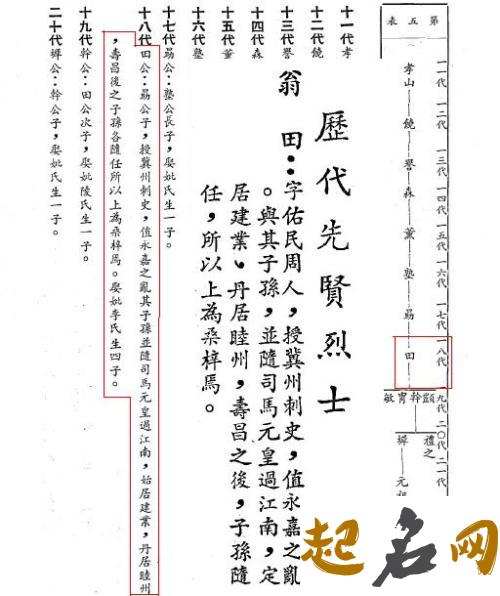 第五表
一一代 一二代 一三代 一四代 一五代 一六代 一七代 一八代 一九代 二〇代 二一代
孝山—饒—譽—森—薰—塾—易—田
顗 幹 胄 敏
禮之
樨—元
歷代先賢烈士
翁田：字佑民周人，授冀州刺史，值永嘉之亂
。與其子孫，並隨司馬元皇過江南，定
居建業、丹居睦州，壽昌之後，子孫隨
任，所以上為桑梓焉。
十一代孝
十二代饒
十三代譽
十四代森
十五代薰
十六代塾
十七代易公：塾公長子，娶妣氏生一子。
十八代田公：易公子，授冀州刺史，值永嘉之亂其子孫並隨司馬元皇過江南，始居建業，丹居睦州
，壽昌後之子孫各隨任所以上為桑梓焉。娶妣李氏生四子。
十九代幹公：田公次子，娶妣陵氏生一子。
二十代樨公：幹公子，娶妣氏生一子。
起名网